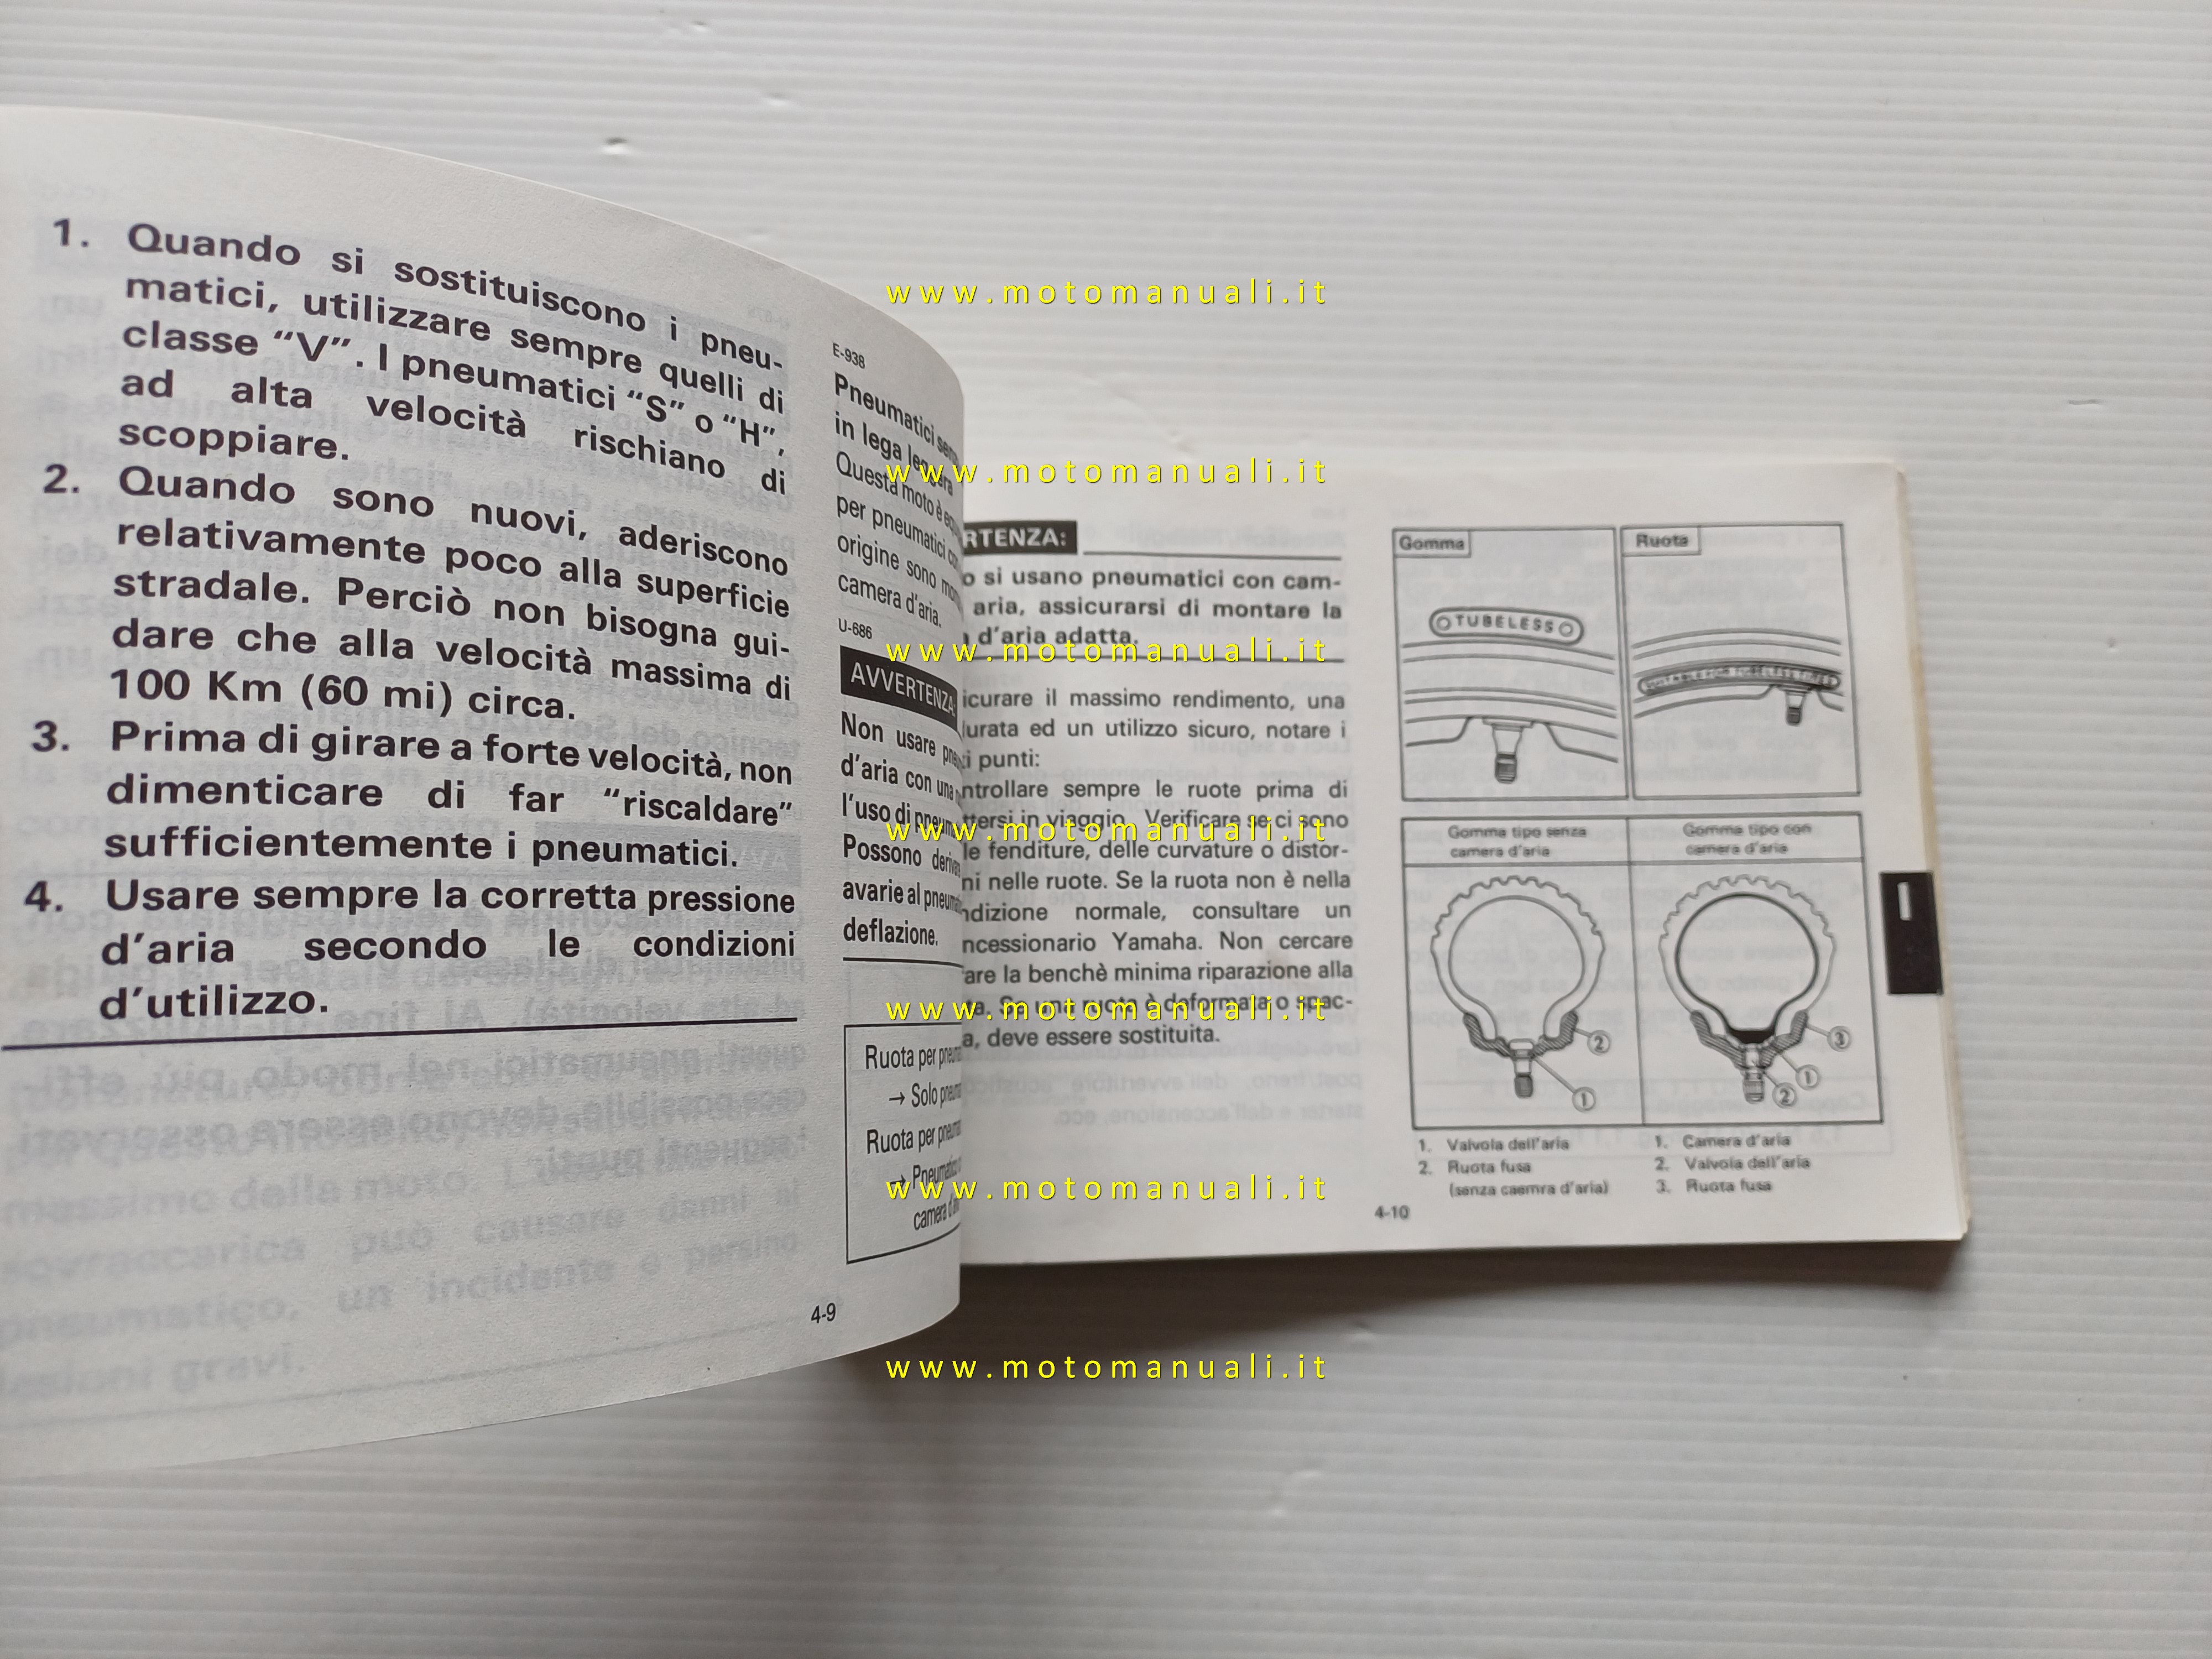 1. Quando si sostituiscono i pneu-
matici, utilizzare sempre quelli di
classe “V”. I pneumatici “S” o “H”,
ad alta velocità rischiano di
scoppiare.
2. Quando sono nuovi, aderiscono
relativamente poco alla superficie
stradale. Perciò non bisogna gui-
dare che alla velocità massima di
100 Km (60 mi) circa.
3. Prima di girare a forte velocità, non
dimenticare di far “riscaldare”
sufficientemente i pneumatici.
4. Usare sempre la corretta pressione
d’aria secondo le condizioni
d’utilizzo.
E-938
Pneumatici
in lega leggera
Questa moto è
per pneumatici
origine sono
camera d’aria.
U-686
AVVERTENZA:
Non usare
d’aria con una
l’uso di
Possono
avarie al
deflazione.
Ruota per
→ Solo
Ruota per
→
camera
4-9
RTENZA:
o si usano pneumatici con cam-
aria, assicurarsi di montare la
d’aria adatta.
icurare il massimo rendimento, una
urata ed un utilizzo sicuro, notare i
i punti:
ntrollare sempre le ruote prima di
ttersi in viaggio. Verificare se ci sono
le fenditure, delle curvature o distor-
ni nelle ruote. Se la ruota non è nella
ndizione normale, consultare un
ncessionario Yamaha. Non cercare
are la benchè minima riparazione alla
ta. Se una ruota è deformata o spac-
a, deve essere sostituita.
Gomma
Ruota
TUBELESS
SUITABLE FOR TUBELESS TIRES
Gomma tipo senza
camera d’aria
Gomma tipo con
camera d’aria
2
1
3
1
2
1. Valvola dell’aria
2. Ruota fusa
(senza caemra d’aria)
1. Camera d’aria
2. Valvola dell’aria
3. Ruota fusa
4-10
www.motomanuali.it
www.motomanuali.it
www.motomanuali.it
www.motomanuali.it
www.motomanuali.it
www.motomanuali.it
www.motomanuali.it